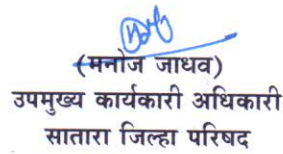 (मनोज जाधव)
उपमुख्य कार्यकारी अधिकारी
सातारा जिल्हा परिषद